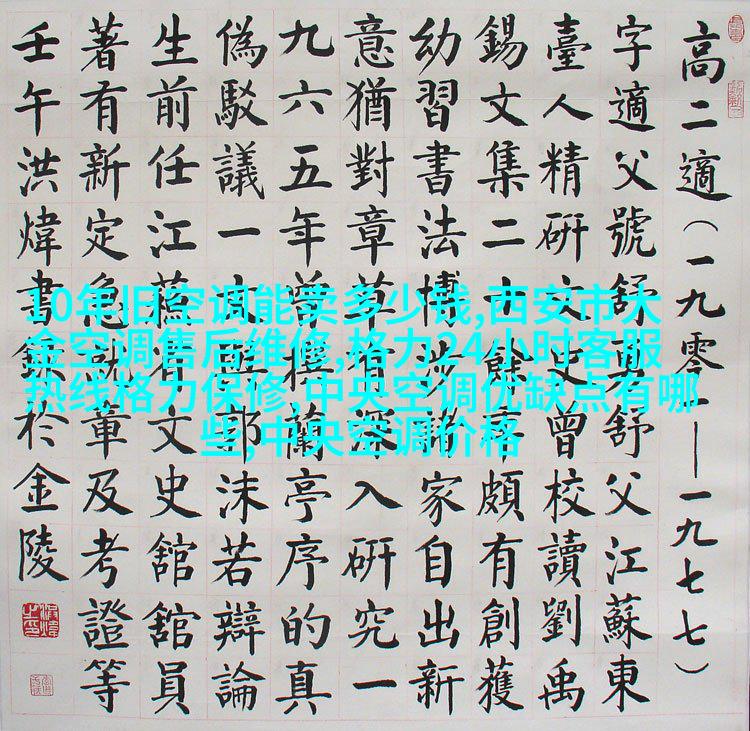 高二適（一九零一—一九七七）
字適父號舒鳧舒父江蘇東
臺人精研文史曾校讀劉禹
錫文集二十餘卷頗有創獲
幼習書法博涉諸家自出新
意猶對章草有深入研究一
九六五年曾撰蘭亭序的真
偽駁議一文與郭沫若辯論
生前任江蘇省文史館館員
著有新定急就章及考證等
壬午洪煒書錄於金陵
10年旧空调能卖多少钱,西安市大
金空调售后维修,格力24小时客服
热线格力保修,中央空调优缺点有哪
些,中央空调价格